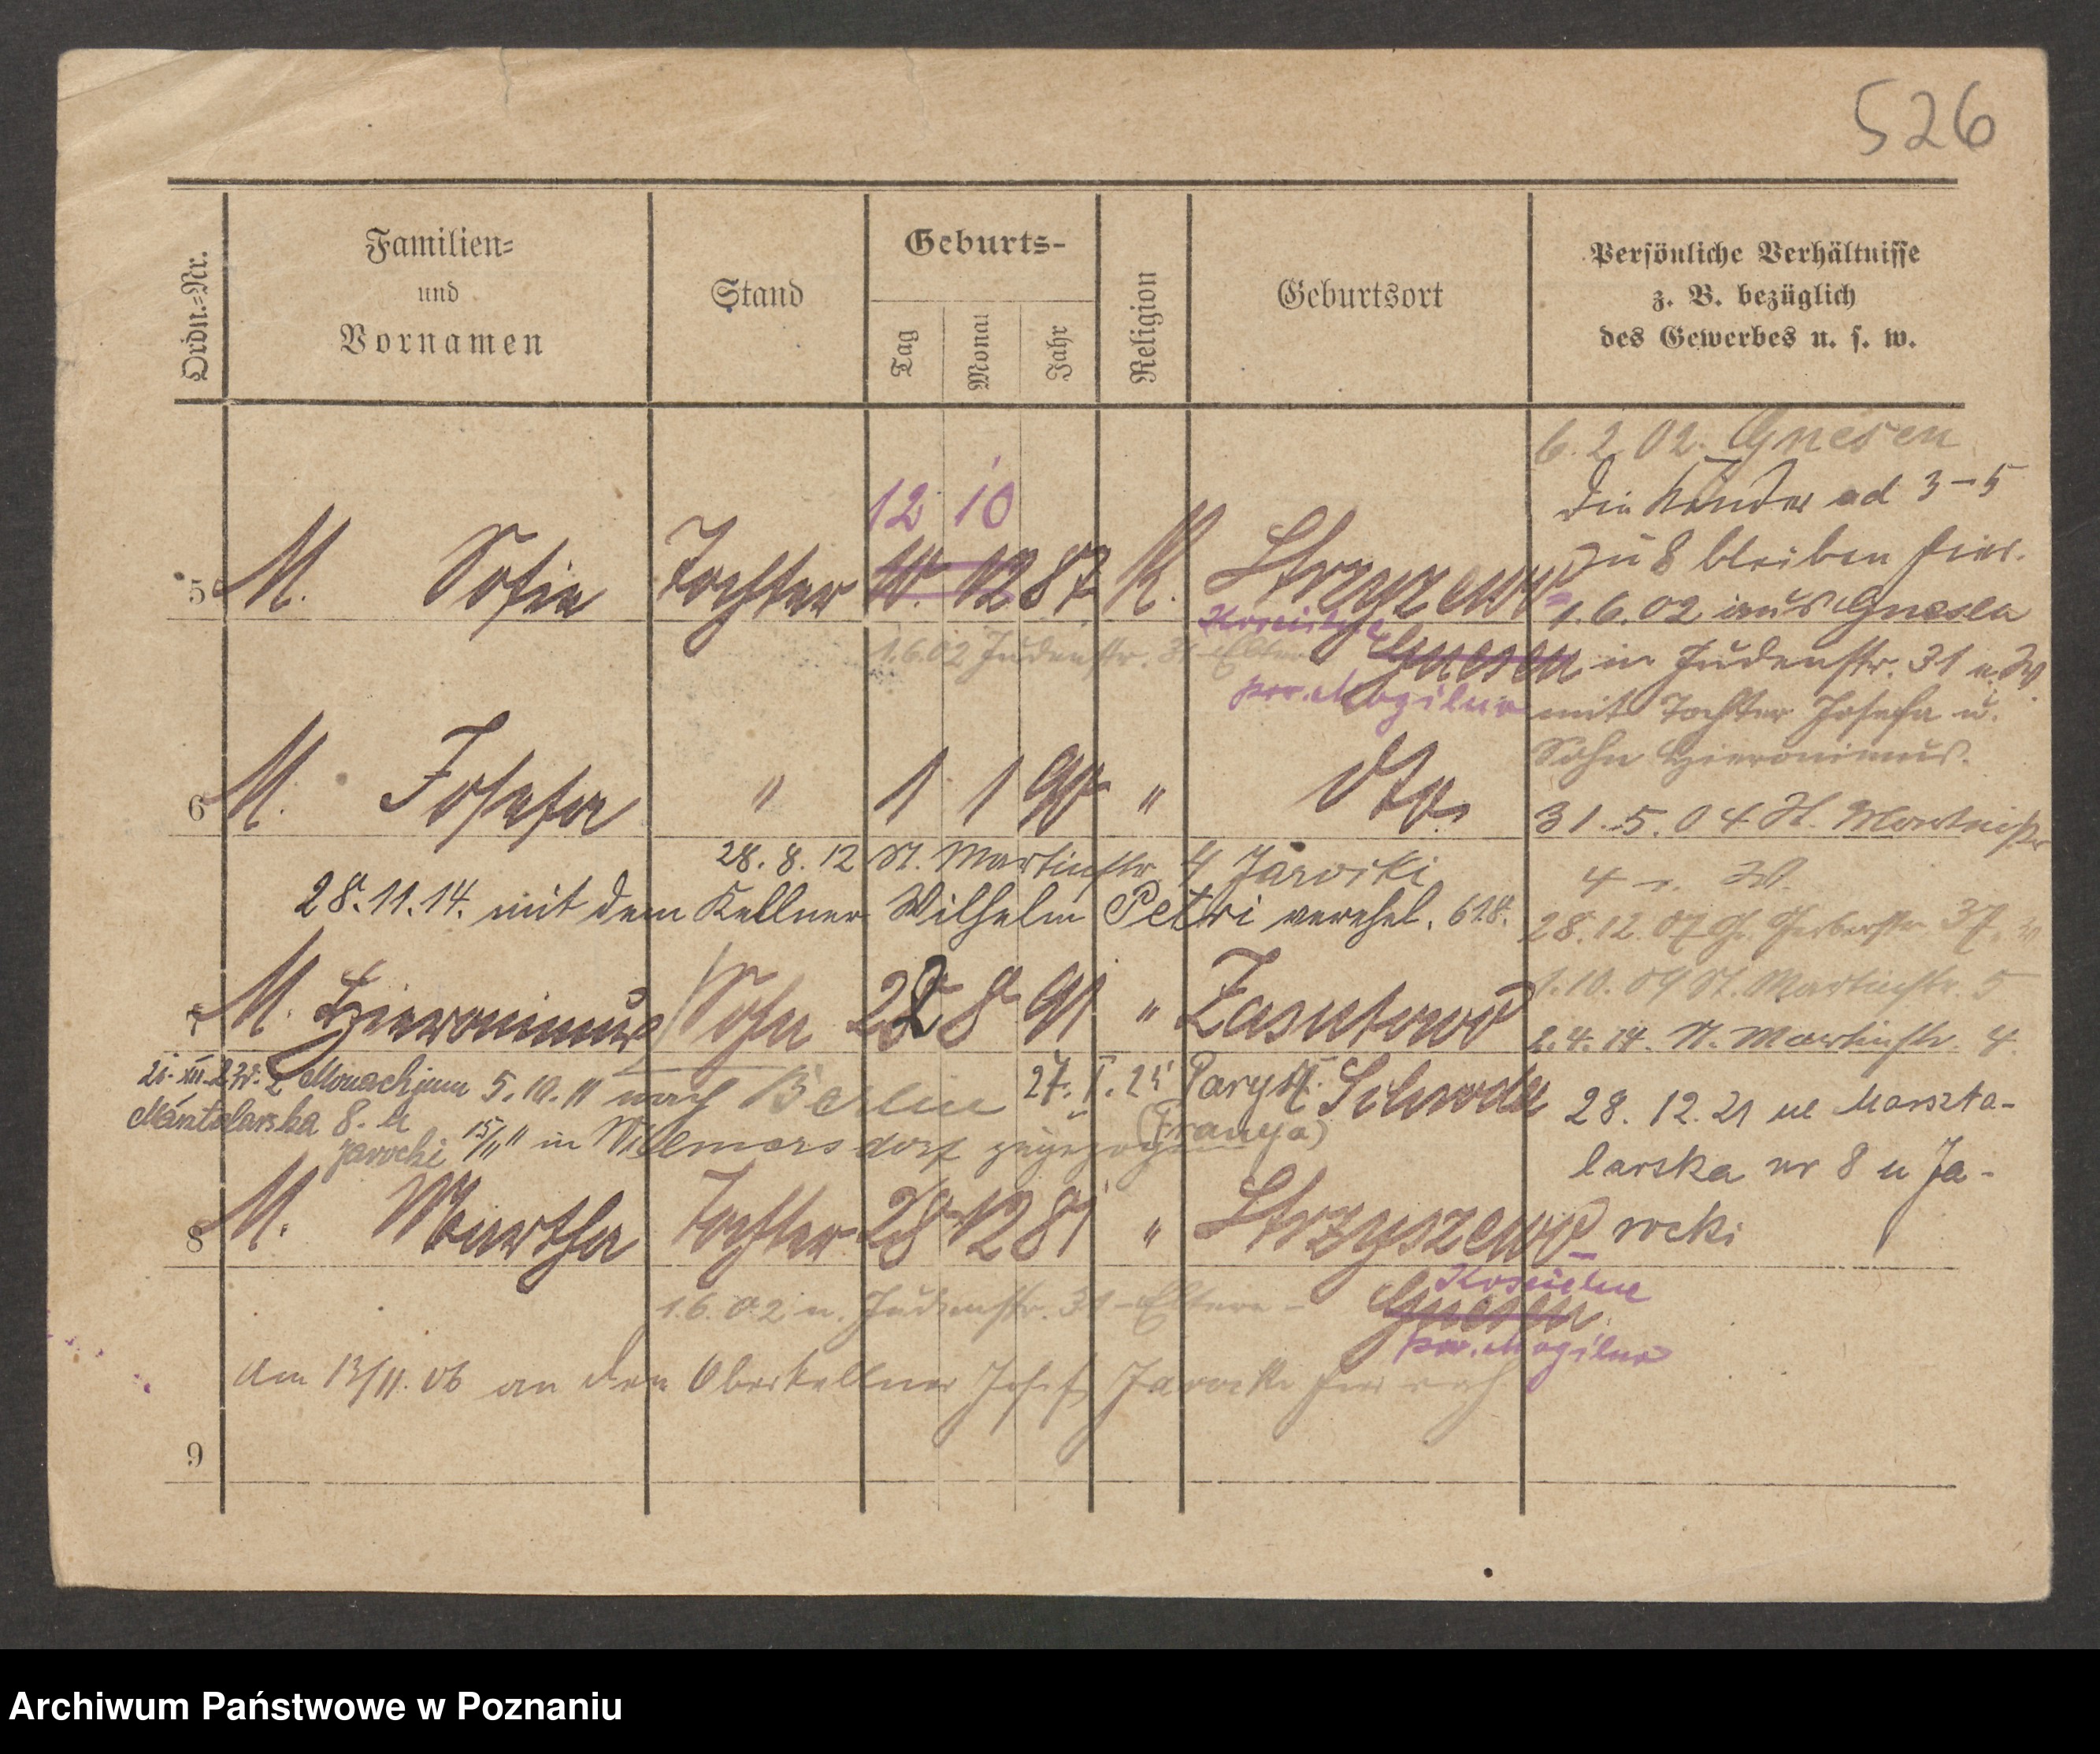 526
Ordn.=Nr.
Familien=
und
Vornamen
Stand
Geburts-
Tag
Monat
Jahr
Religion
Geburtsort
Persönliche Verhältnisse
z. B. bezüglich
des Gewerbes u. s. w.
6.2.02. Gnesen
Die Kinder ad 3-5
zu 8 bleiben hier.
1.6.02 aus Gnesen
in Judenstr. 31 u. W.
mit Tochter Josefa u.
Sohn Hieronimus.
31.5.04 St. Martinstr
4 W.
28.12.07 Gr. Gerberstr. 37.
1.10.09 St. Martinstr. 5
2.4.14. St. Martinstr. 4.
28. 12. 21 ul Maszta-
larska nr 8 u Ja-
rocki
12 10
5 M. Sofia Tochter 10. 12 87 K. Strzyzewo
Koscielne
Gnesen
1.6.02 Judenstr. 31 Eltern
pow. Mogilno
6 M. Josefa " 1 1 90 " dto.
28. 8. 12 St. Martinstr. 4 Jarocki
28.11.14. mit dem Kellner Wilhelm Petri verehel. 618.
7 M. Hieronimus Sohn 22 8 91 " Zasutowo
Schroda
z Monachjum 5.10.11 nach Berlin 27. I. 25 Paryż
(Francja)
8. u
Jarocki 15/11 11 in Wilmersdorf zugezogen
8 M. Martha Tochter 28 12 81 " Strzyszewo
Kościelne
Gnesen
pow. Mogilno
1.6.02 n. Judenstr. 31 - Eltern -
Am 13/11. 06 an den Oberkellner Josef Jarocki
9
Archiwum Państwowe w Poznaniu